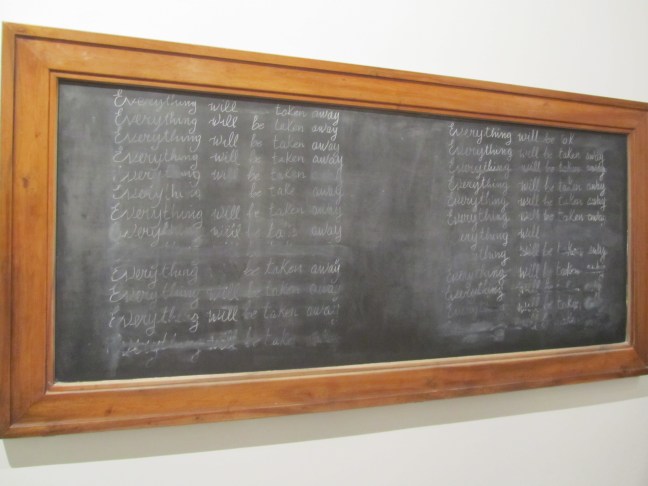 Everything will taken away
Everything will be taken away
Everything will be taken away
Everything will be taken away
Everything will be taken away
Everything be take away
Everything will be taken away
Everything will be taken away
Everything be taken away
Everything will be taken away
Everything will be taken away
Everything will be taken
Everything will be tak
Everything will be taken away
Everything will be taken away
Everything will be taken away
Everything will be taken away
Everything will be taken away
erything will
thing will be taken away
Everything will be taken away
Everything will be taken away
Everything will be taken
will be